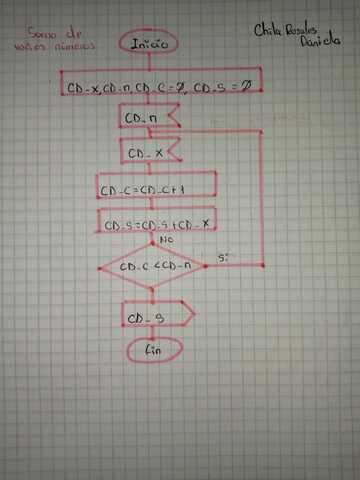 Suma de
varios números
Chila Rosales
Daniela
Inicio
CD_x, CD_n, CD_C = 0, CD_S = 0
CD_n
CD_x
CD_C = CD_C + 1
CD_S = CD_S + CD_x
No
CD_C < CD_n
Si
CD_S
Fin